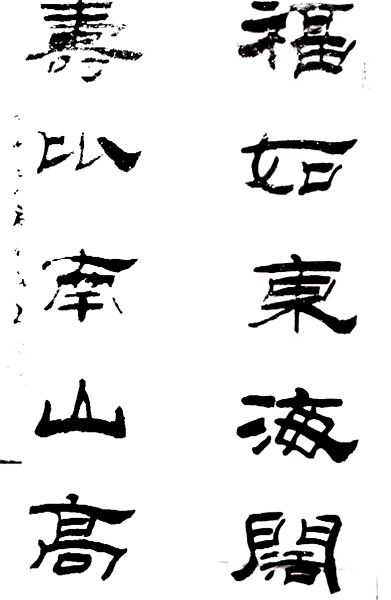 福如東海闊
壽比南山高